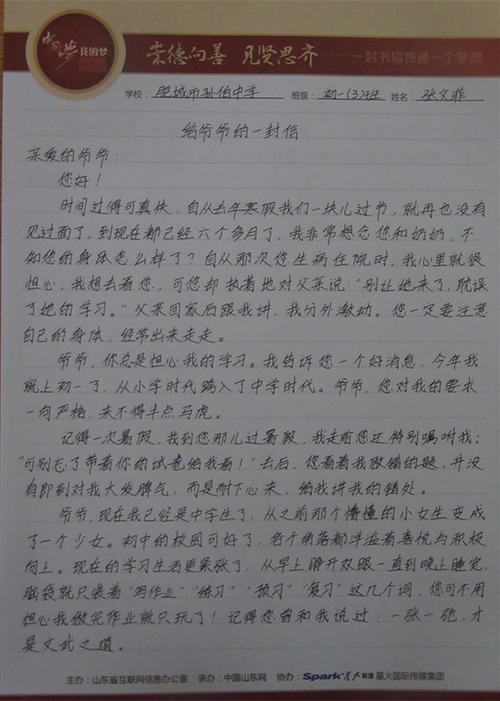 中国梦 我的梦
崇德向善 见贤思齐 ——一封书信传递一个梦想
学校: 肥城市孙伯中学 班级: 初一(3)班 姓名: 张文菲
给爷爷的一封信
亲爱的爷爷:
您好!
时间过得可真快,自从去年寒假我们一块儿过节,就再也没有
见过面了,到现在都已经六个多月了,我非常想念您和奶奶,不
知您的身体怎么样了?自从那次您生病住院时,我心里就很
担心,我想去看您,可您却执着地对父亲说:“别让她来了,耽误
了她的学习。”父亲回家后跟我讲,我分外激动。您一定要注意
自己的身体,经常出来走走。
爷爷,你总是担心我的学习。我告诉您一个好消息,今年我
就上初一了,从小学时代踏入了中学时代。爷爷,您对我的要求
一向严格,来不得半点马虎。
记得一次暑假,我到您那儿过暑假,我走前您还特别嘱咐我:
“可别忘了带着你的试卷给我看!”去后,您看着我做错的题,并没
有即刻对我大发脾气,而是耐下心来,给我讲我的错处。
爷爷,现在我已经是中学生了,从之前那个懵懂的小女生变成
了一个少女。初中的校园可好了,各个角落都洋溢着喜悦与积极
向上。现在的学习生活更紧张了,从早上睁开双眼一直到晚上睡觉,
脑袋就只装着“写作业”“练习”“预习”“复习”这几个词,您可不用
担心我做完作业就只玩了!记得您曾和我说过:一张一弛,才
是文武之道。
主办:山东省互联网信息办公室 承办:中国山东网 协办:Spark星火英语 星火国际传媒集团